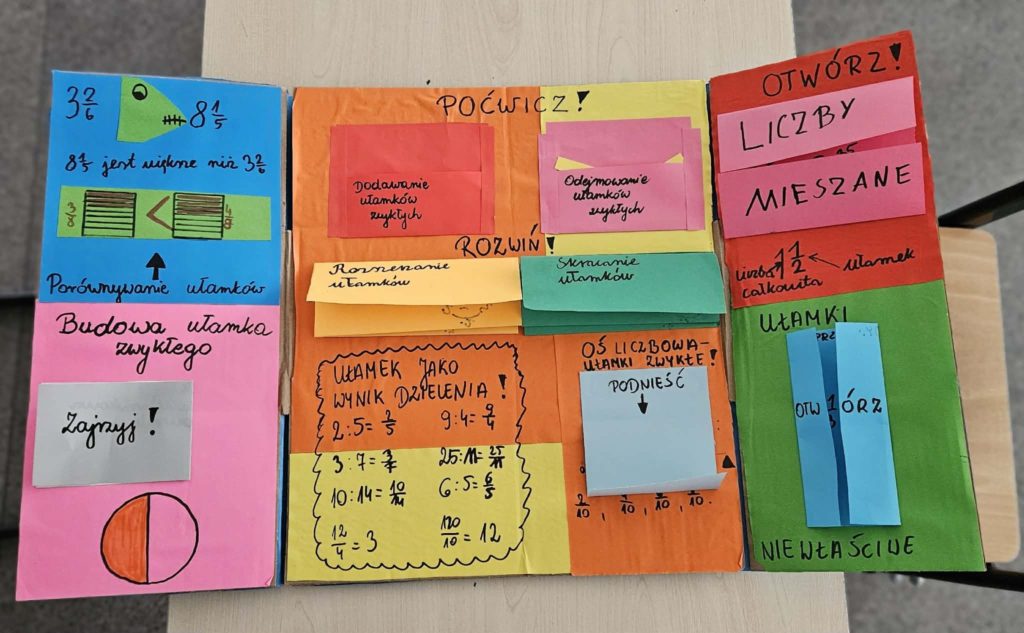 3 2/6
8 1/5
8 1/5 jest większe niż 3 2/6
3/8 < 4/8
Porównywanie ułamków
Budowa ułamka
zwykłego
Zajrzyj!
POĆWICZ!
Dodawanie
ułamków
zwykłych
Odejmowanie
ułamków
zwykłych
ROZWIŃ!
Rozszerzanie
ułamków
Skracanie
ułamków
UŁAMEK JAKO
WYNIK DZIELENIA!
2:5=2/5
9:4=9/4
3:7=3/7
25:11=25/11
10:14=10/14
6:5=6/5
12/4=3
120/10=12
OŚ LICZBOWA-
UŁAMKI ZWYKŁE!
PODNIEŚĆ
OTWÓRZ!
LICZBY
MIESZANE
1 1/2
ułamek
liczba
całkowita
UŁAMKI
OTWÓRZ
NIEWŁAŚCIWE